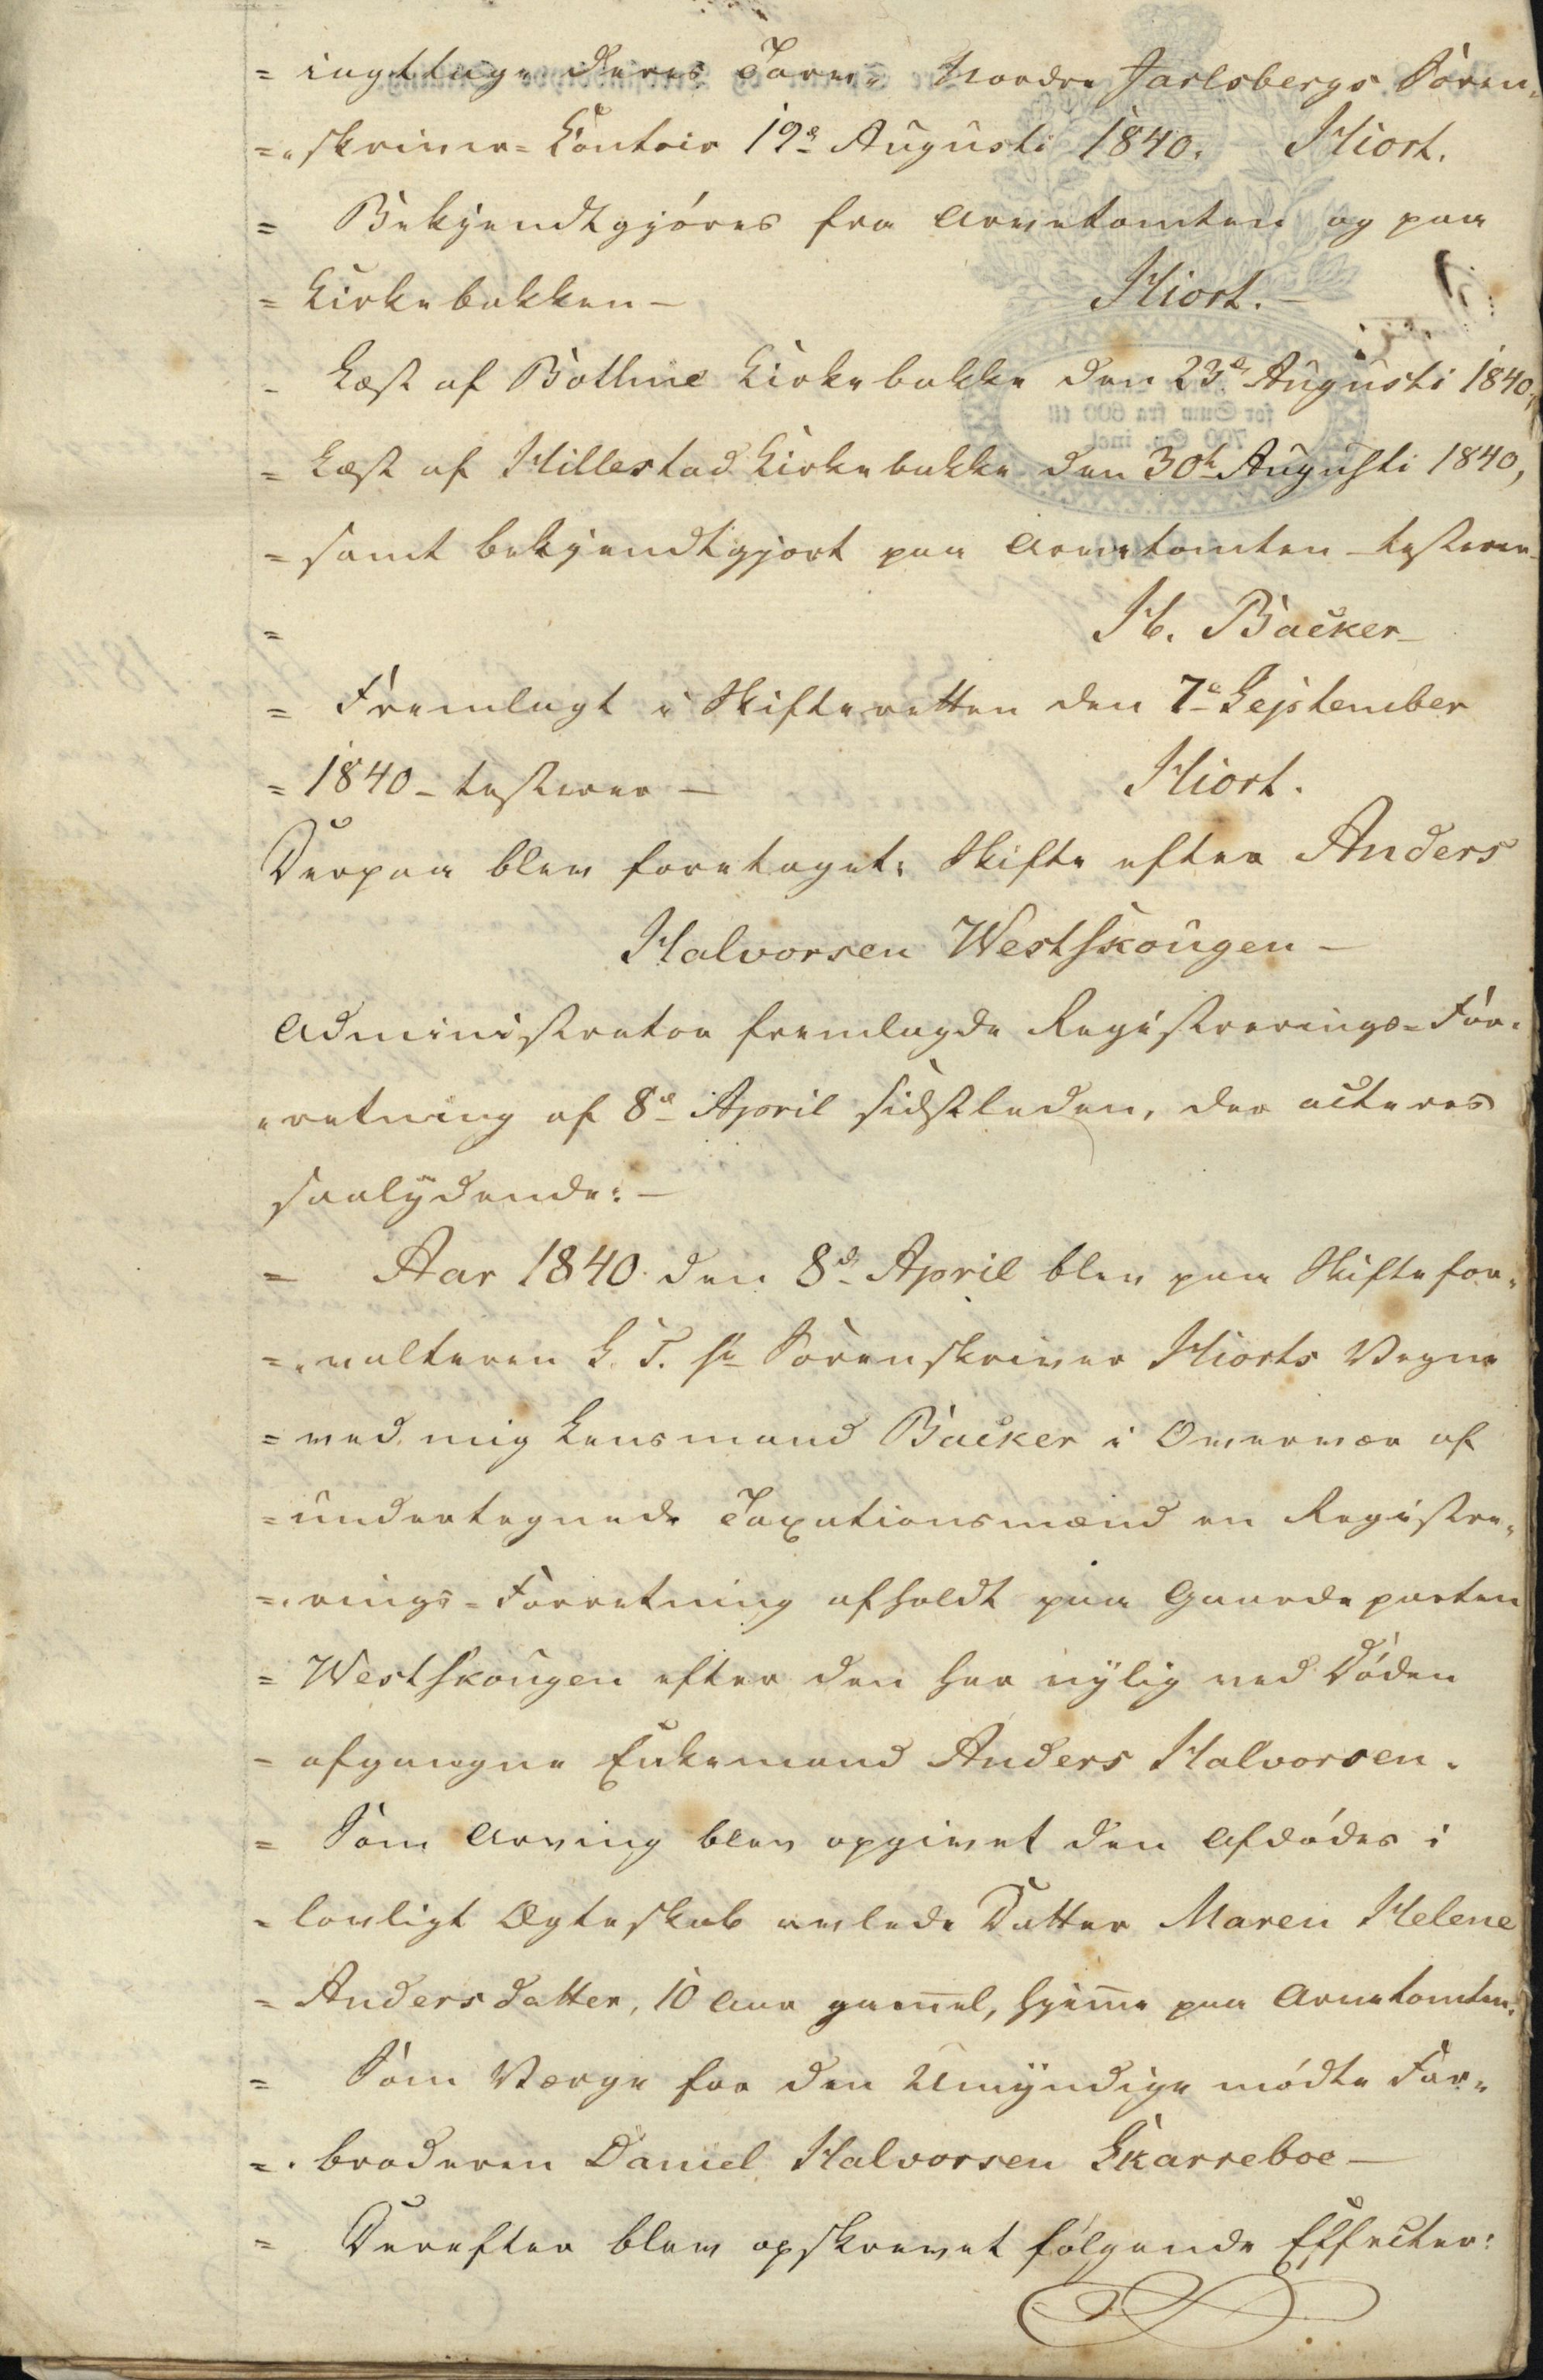 = iagttage deres Tarv. Nordre Jarlsbergs Soren-
=„skriver-Contoir 19de Augusti 1840. Hiort.
= Bekjendtgjöres fra Arvetomten og paa
= Kirkebakken – Hiort. –
= Læst af Bothne Kirkebakke den 23de Augusti 1840,
= Læst af Hillestad Kirkebakke den 30te Augusti 1840,
= samt bekjendtgjort paa Arvetomten – testerer –
= H. Backer –
= Fremlagt i Skifteretten den 7de September
= 1840 – testerer – Hiort.
Derpaa blev foretaget: Skifte efter Anders
Halvorsen Westskougen –
Administrator fremlagde Registrerings-For-
„retning af 8de April sidstleden, der acteres
saalydende: –
= Aar 1840 den 8de April blev paa Skiftefor-
=„valteren S. T. Hr Sorenskriver Hiorts Vegne
= ved mig Lensmand Backer i Overvær af
= undertegnede Taxationsmænd en Registre-
=„rings-Forretning afholdt paa Gaardeparten
= Westskougen efter den her nylig ved Döden
= afgangne Enkemand Anders Halvorsen.
= Som Arving blev opgivet den Afdödes i
= lovligt Ægteskab avlede Datter Maren Helene
= Andersdatter, 10 Aar gam̅el, hjem̅e paa Arvetomten.
= Som Værge for den Umyndige mödte Far-
=„broderen Daniel Halvorsen Skarreboe –
= Derefter blev opskrevet fölgende Effecter:
for Sum fra 600 til
700 Sp. incl.